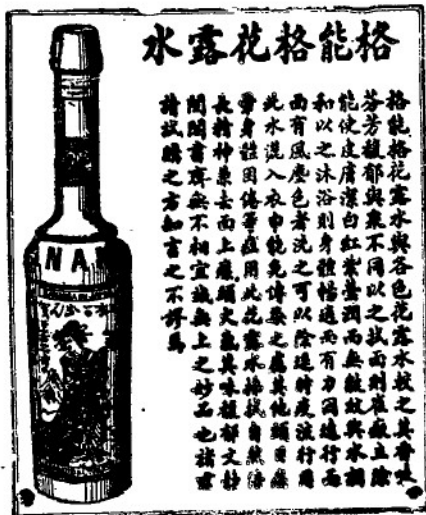 格能格花露水
格能格花露水與各色花露水較之其香味
芬芳馥郁與衆不同以之拭面則雀瘢立除
能使皮膚潔白紅紫瑩潤而無皺紋與水調
和以之沐浴則身體暢適而有力因遠行而
面有風塵色者洗之可以除退時疫流行用
此水洒入衣巾能免傳染之虞其他頭目痛
身體困倦等症用此花露水搽拭自然
長精神兼去面上瘢頭火氣其味馥郁文静
閨閣書齋無不相宜誠無上之妙品也諸君
請試購之方知言之不謬焉
NAN